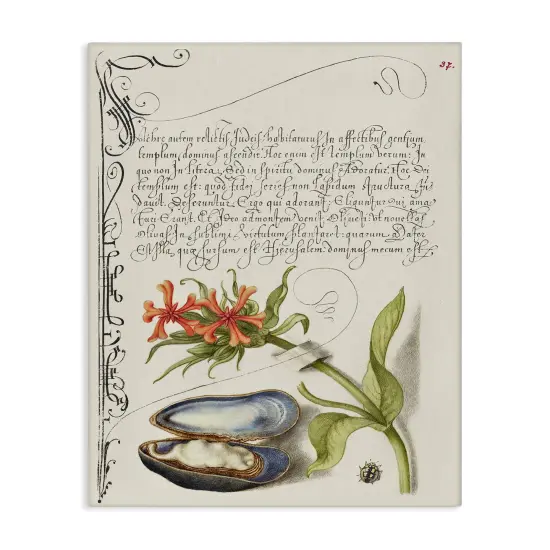 37.
autem relictis Judeis habitaturus In affectibus gentium
templum dominus ascendit. Hoc enim est templum verum: In
quo non In litera, Sed in spiritu dominus Adoratur. Hoc Dei
templum est: quod fidei series non lapidum structura
Deseruntur Ergo qui adorant: Eliguntur Qui ama
turi Erant. Et Ideo ad montem venit Oliveti: Ut novellas
Olivas In sublime virtutum plantaret: quarum Mater
Est Illa, quæ sursum est Hierusalem: dominus mecum est.